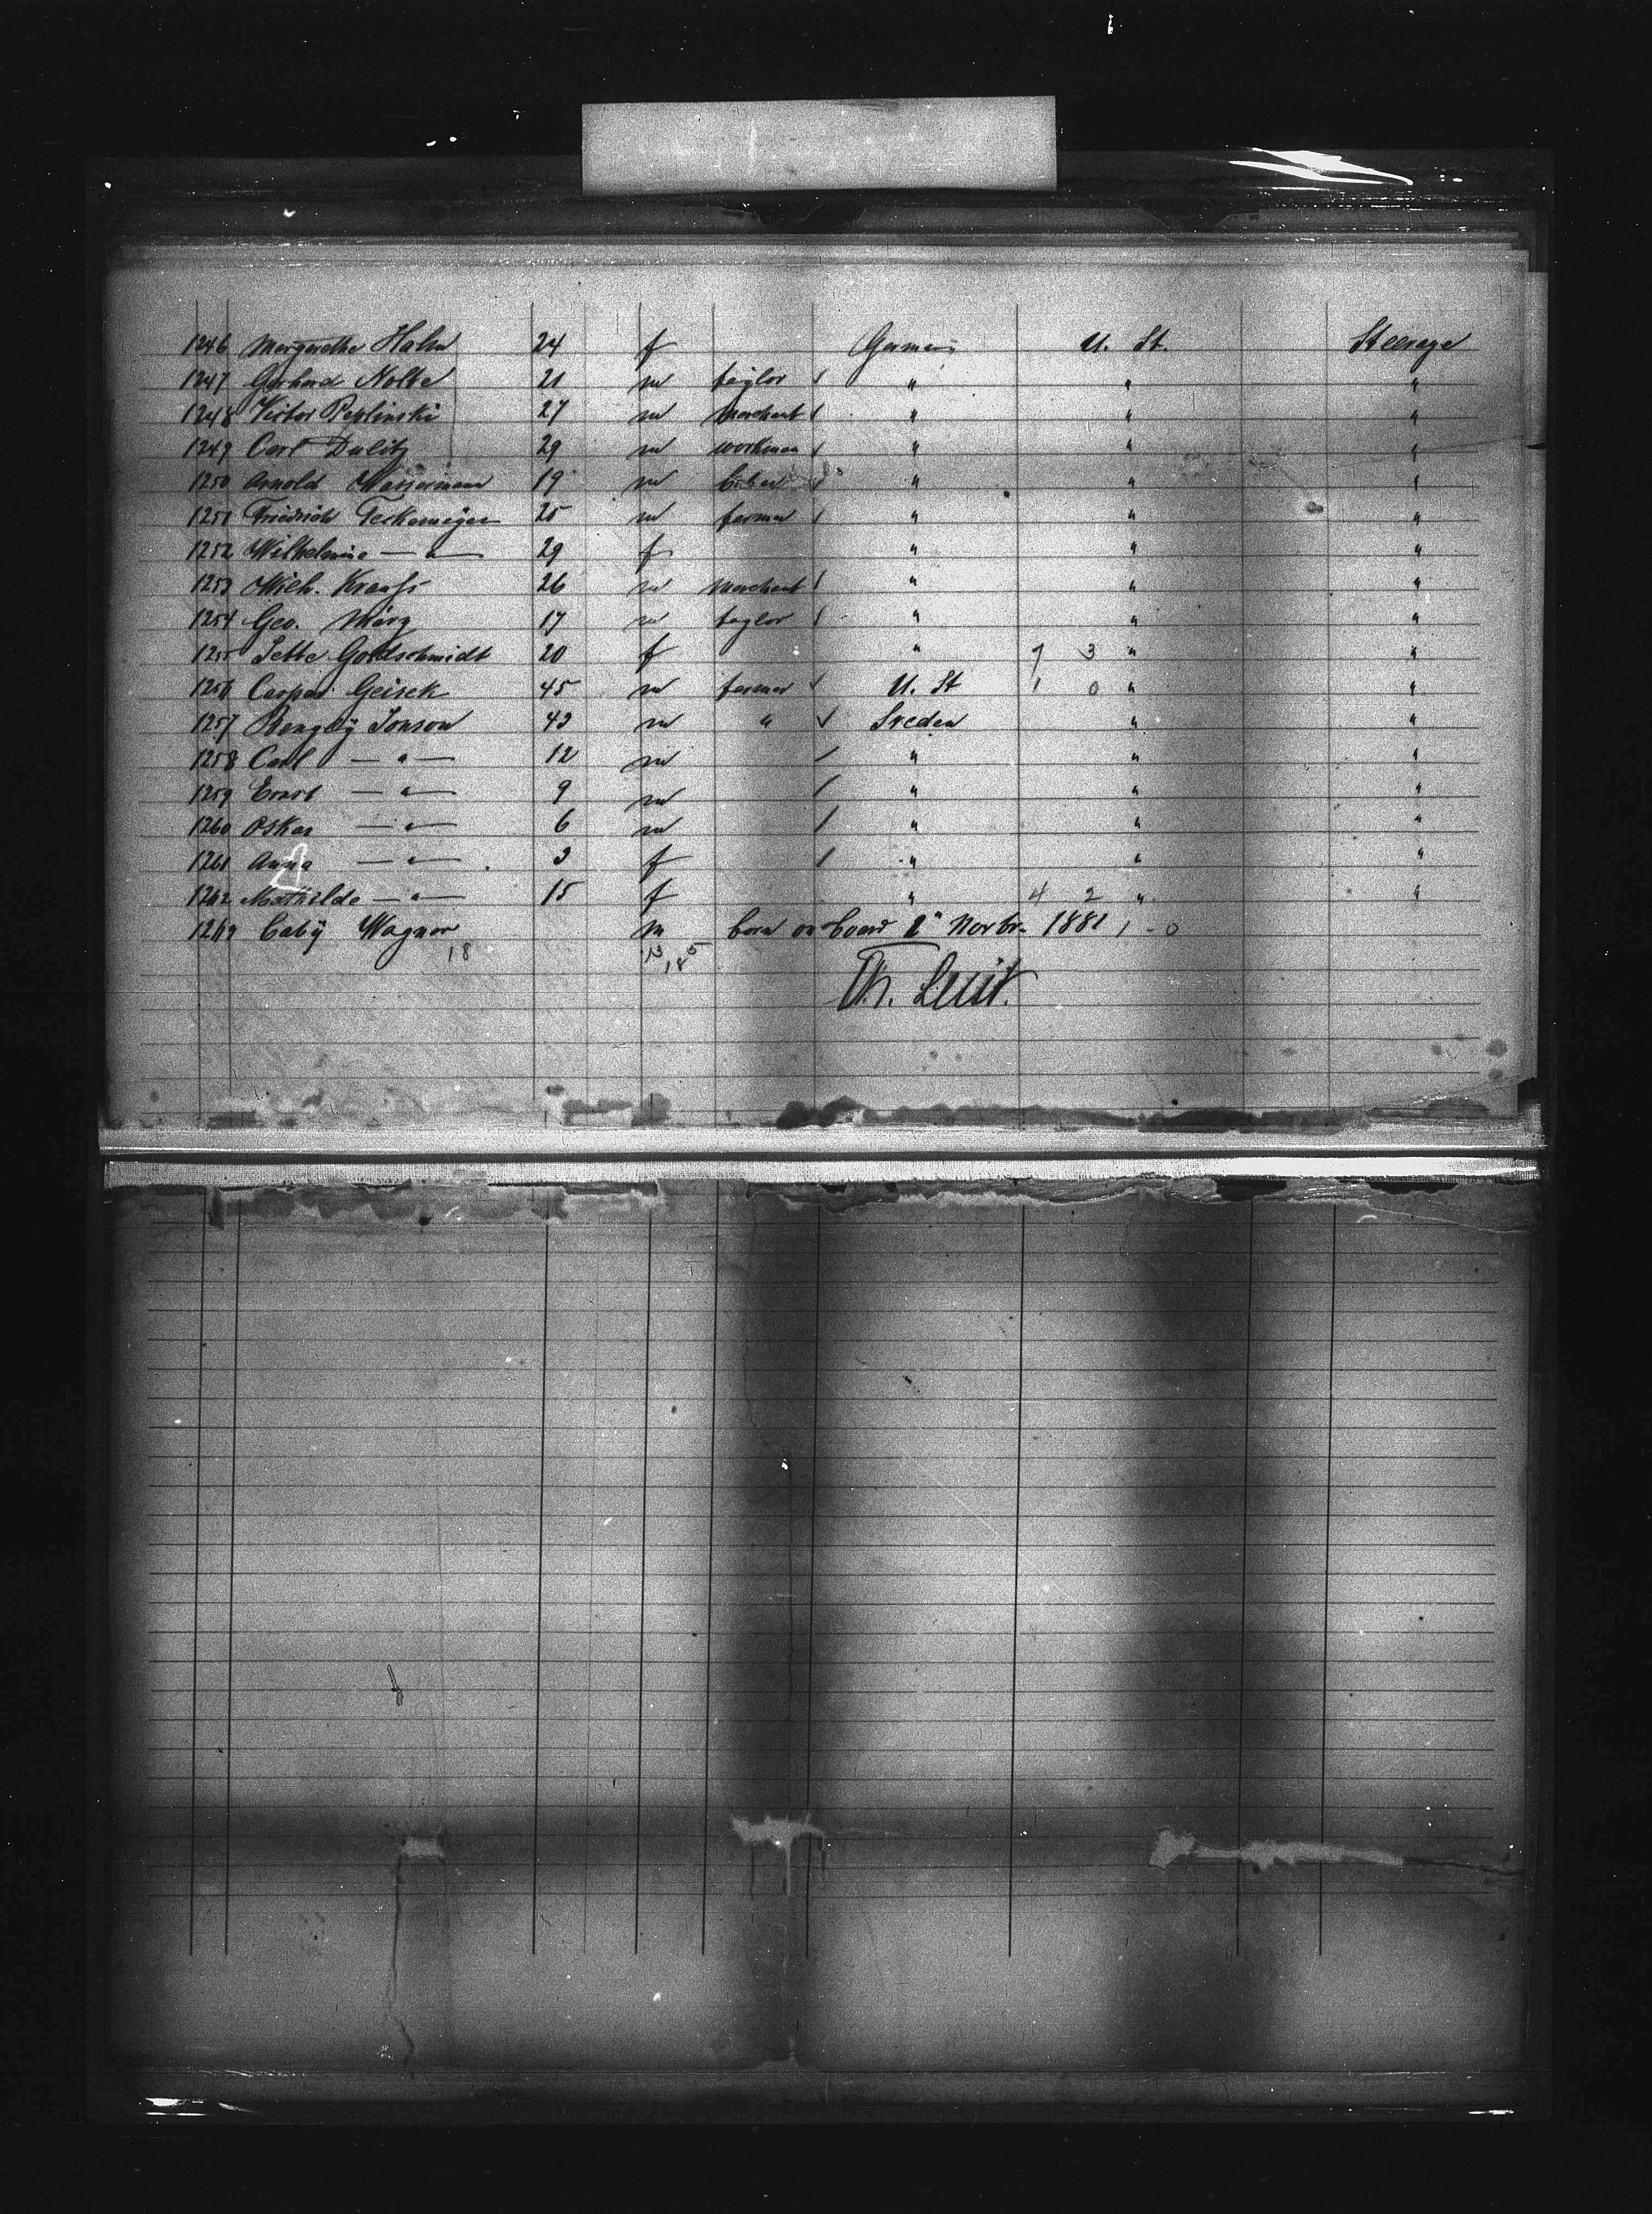 1246 Margarethe Hahn 24 f Germany U. St. Steerage
1247 Gerhard Nolte 21 m taylor " " "
1248 Victor Peplinski 27 m merchant " " "
1249 Carl Dulitz 29 m workman " " "
1250 Arnold Wassermann 19 m " " "
1251 Friedrich Teckemeyer 25 m farmer " " "
1252 Wilhelmine — " — 29 f " " "
1253 Wilh. Krauss 26 m merchant " " "
1254 Geo. März 17 m taylor " " "
1255 Jette Goldschmidt 20 f " 7 3 " "
1256 Caspar Geisek 45 m farmer U. St 1 0 " "
1257 Jonson 43 m " Sveden " "
1258 Carl — " — 12 m " " "
1259 Ernst — " — 9 m " " "
1260 Oskar — " — 6 m " " "
1261 Anna — " — 3 f " " "
1262 Mathilde — " — 15 f " 4 2 " "
1263 baby Wagner m born on board Novbr. 1881 1 - 0
18 13 5
18
Th.